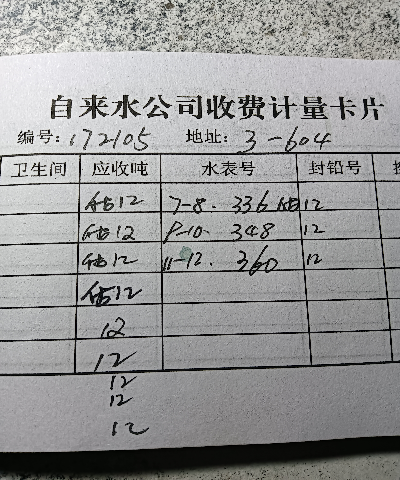 自来水公司收费计量卡片
编号: 172105 地址: 3-604
卫生间 应收吨 水表号 封铅号
估12 7-8. 336 估12
估12 9-10. 348 12
估12 11-12. 360 12
估12
12
12
12
12
12